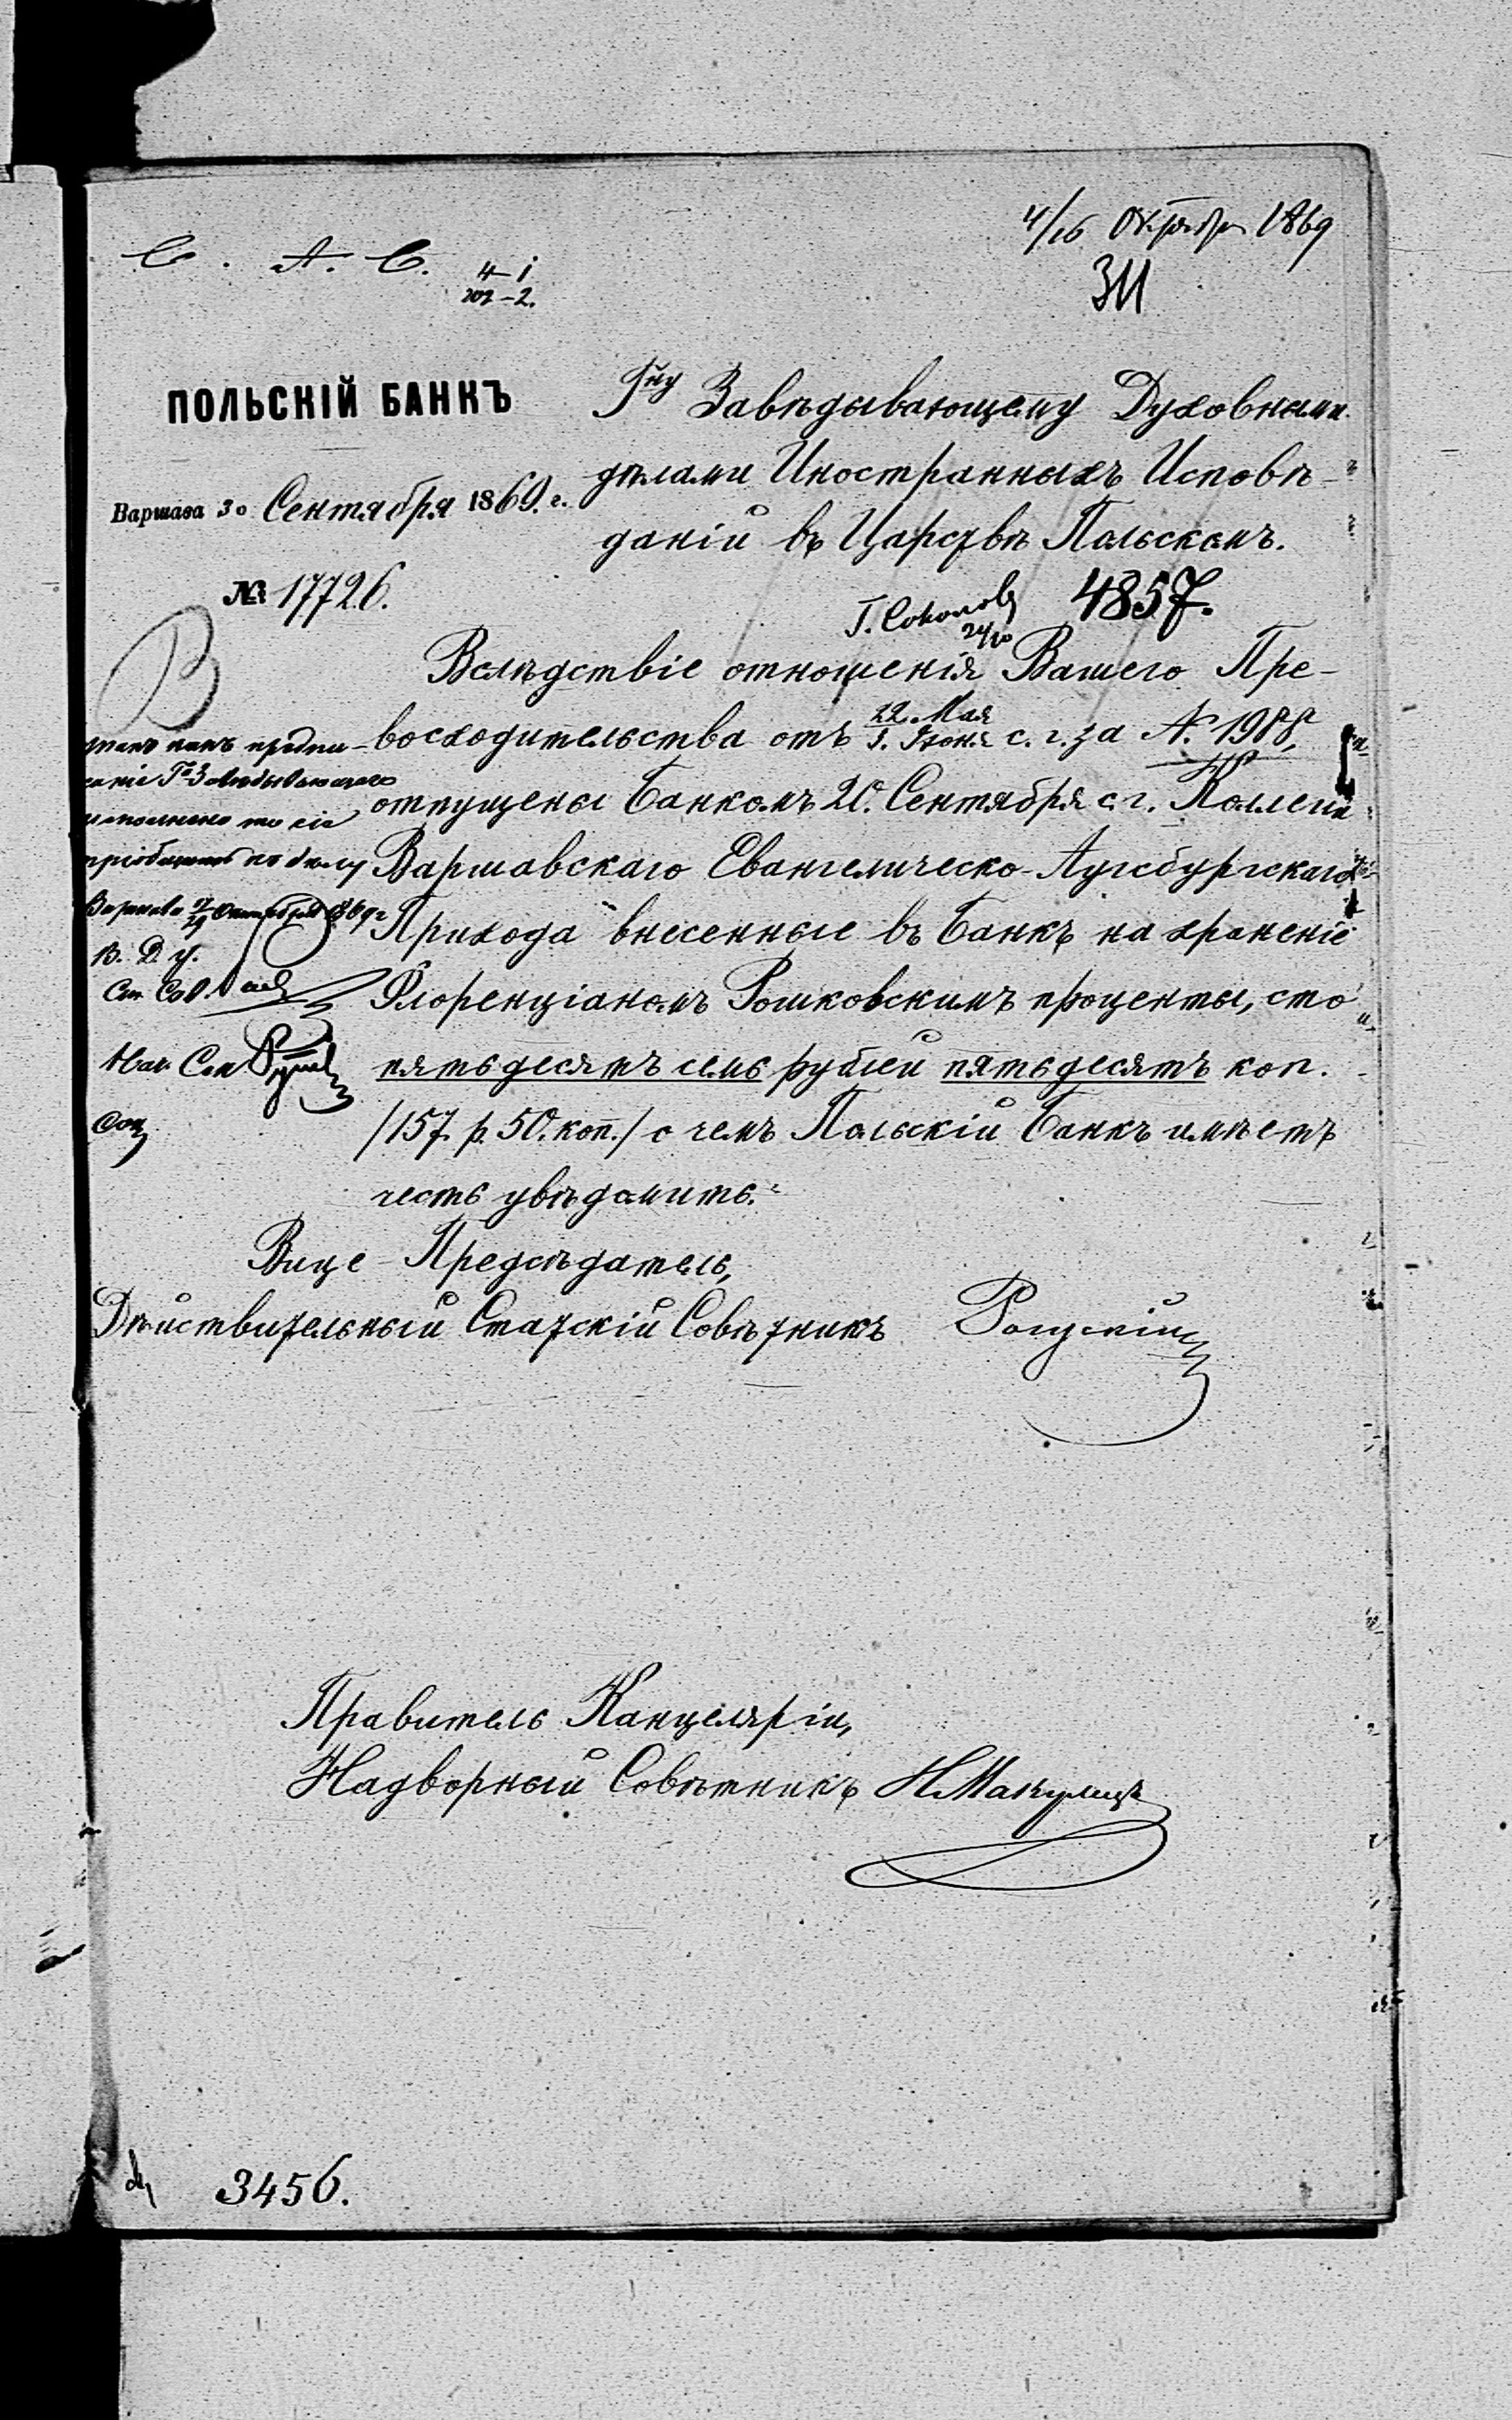 4/16 Октября 1869
311
С. А. С. 4-1
202-2.
ПОЛЬСКІЙ БАНКЪ
Варшава 30 Сентября 1869. г.
№ 17726.
Гну Завѣдывающему Духовными
дѣлами Иностранныхъ Исповѣ-
даній въ Царствѣ Польскомъ.
Г. Соколову 4857.
24/10
Вслѣдствіе отношенія Вашего Пре-
восходительства отъ 22. Мая / 3. Іюня с. г. за №. 1988,
отпущены Банкомъ 20. Сентября с. г. Коллегіи
Варшавскаго Евангелическо-Аугсбургскаго
Прихода внесенные въ Банкъ на храненіе
Флоренціаномъ Рошковскимъ проценты, сто
пятьдесятъ семь рублей пятьдесятъ коп.
/157. р. 50. коп./ о чемъ Польскій Банкъ имѣетъ
честь увѣдомить.
такъ какъ предпи-
саніе Гна Завѣдывающаго
исполнено то сіе
пріобщить къ дѣлу
Варшава Октября 1869 г
В. Д. У.
Ст. Сов.
Нач. Сек
Вице-Предсѣдатель,
Дѣйствительный Статскій Совѣтникъ
Правитель Канцеляріи,
Надворный Совѣтникъ Н. Макулецъ
3456.